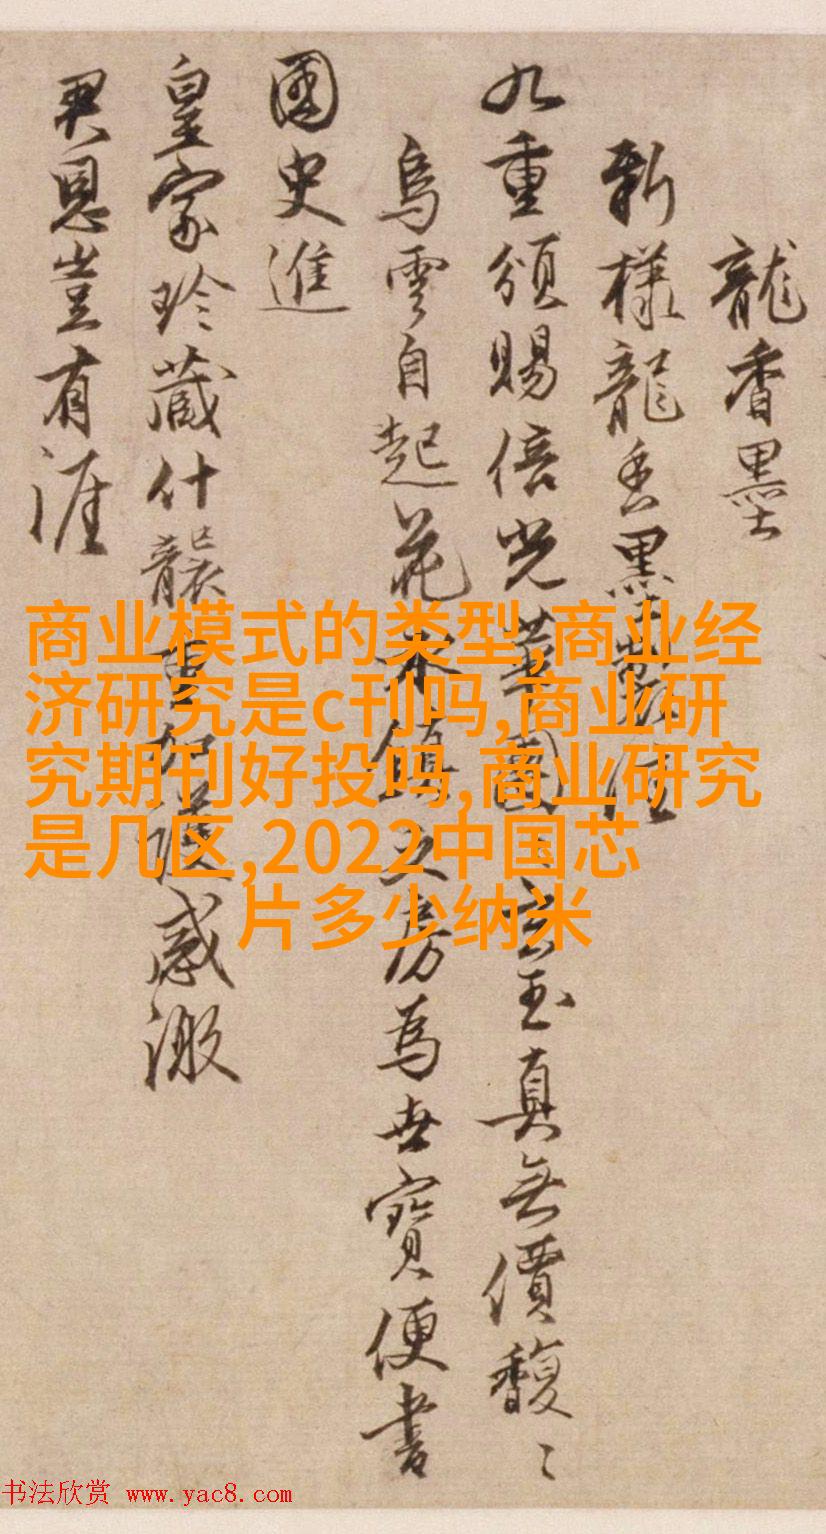 龍香墨
新樣龍香墨製佳
九重頒賜倍光華圓玄玉真無價馥〻
烏雲自起花木鎮文房為世寶便書
國史進
皇家珍藏什襲重加護感激
君恩豈有涯
商业模式的类型,商业经
济研究是c刊吗,商业研
究期刊好投吗,商业研究
是几区,2022中国芯
片多少纳米
书法欣赏 www.yac8.com